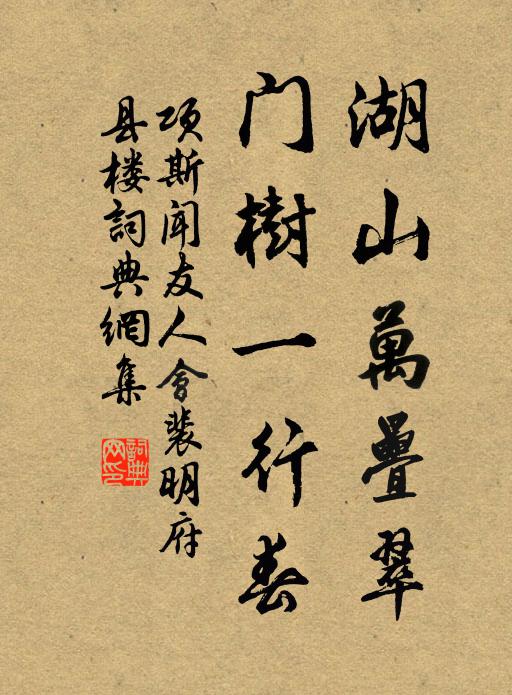 湖山萬疊翠
门樹一行春
项斯闻友人會裴明府
县楼詞典網集
詞典
网印